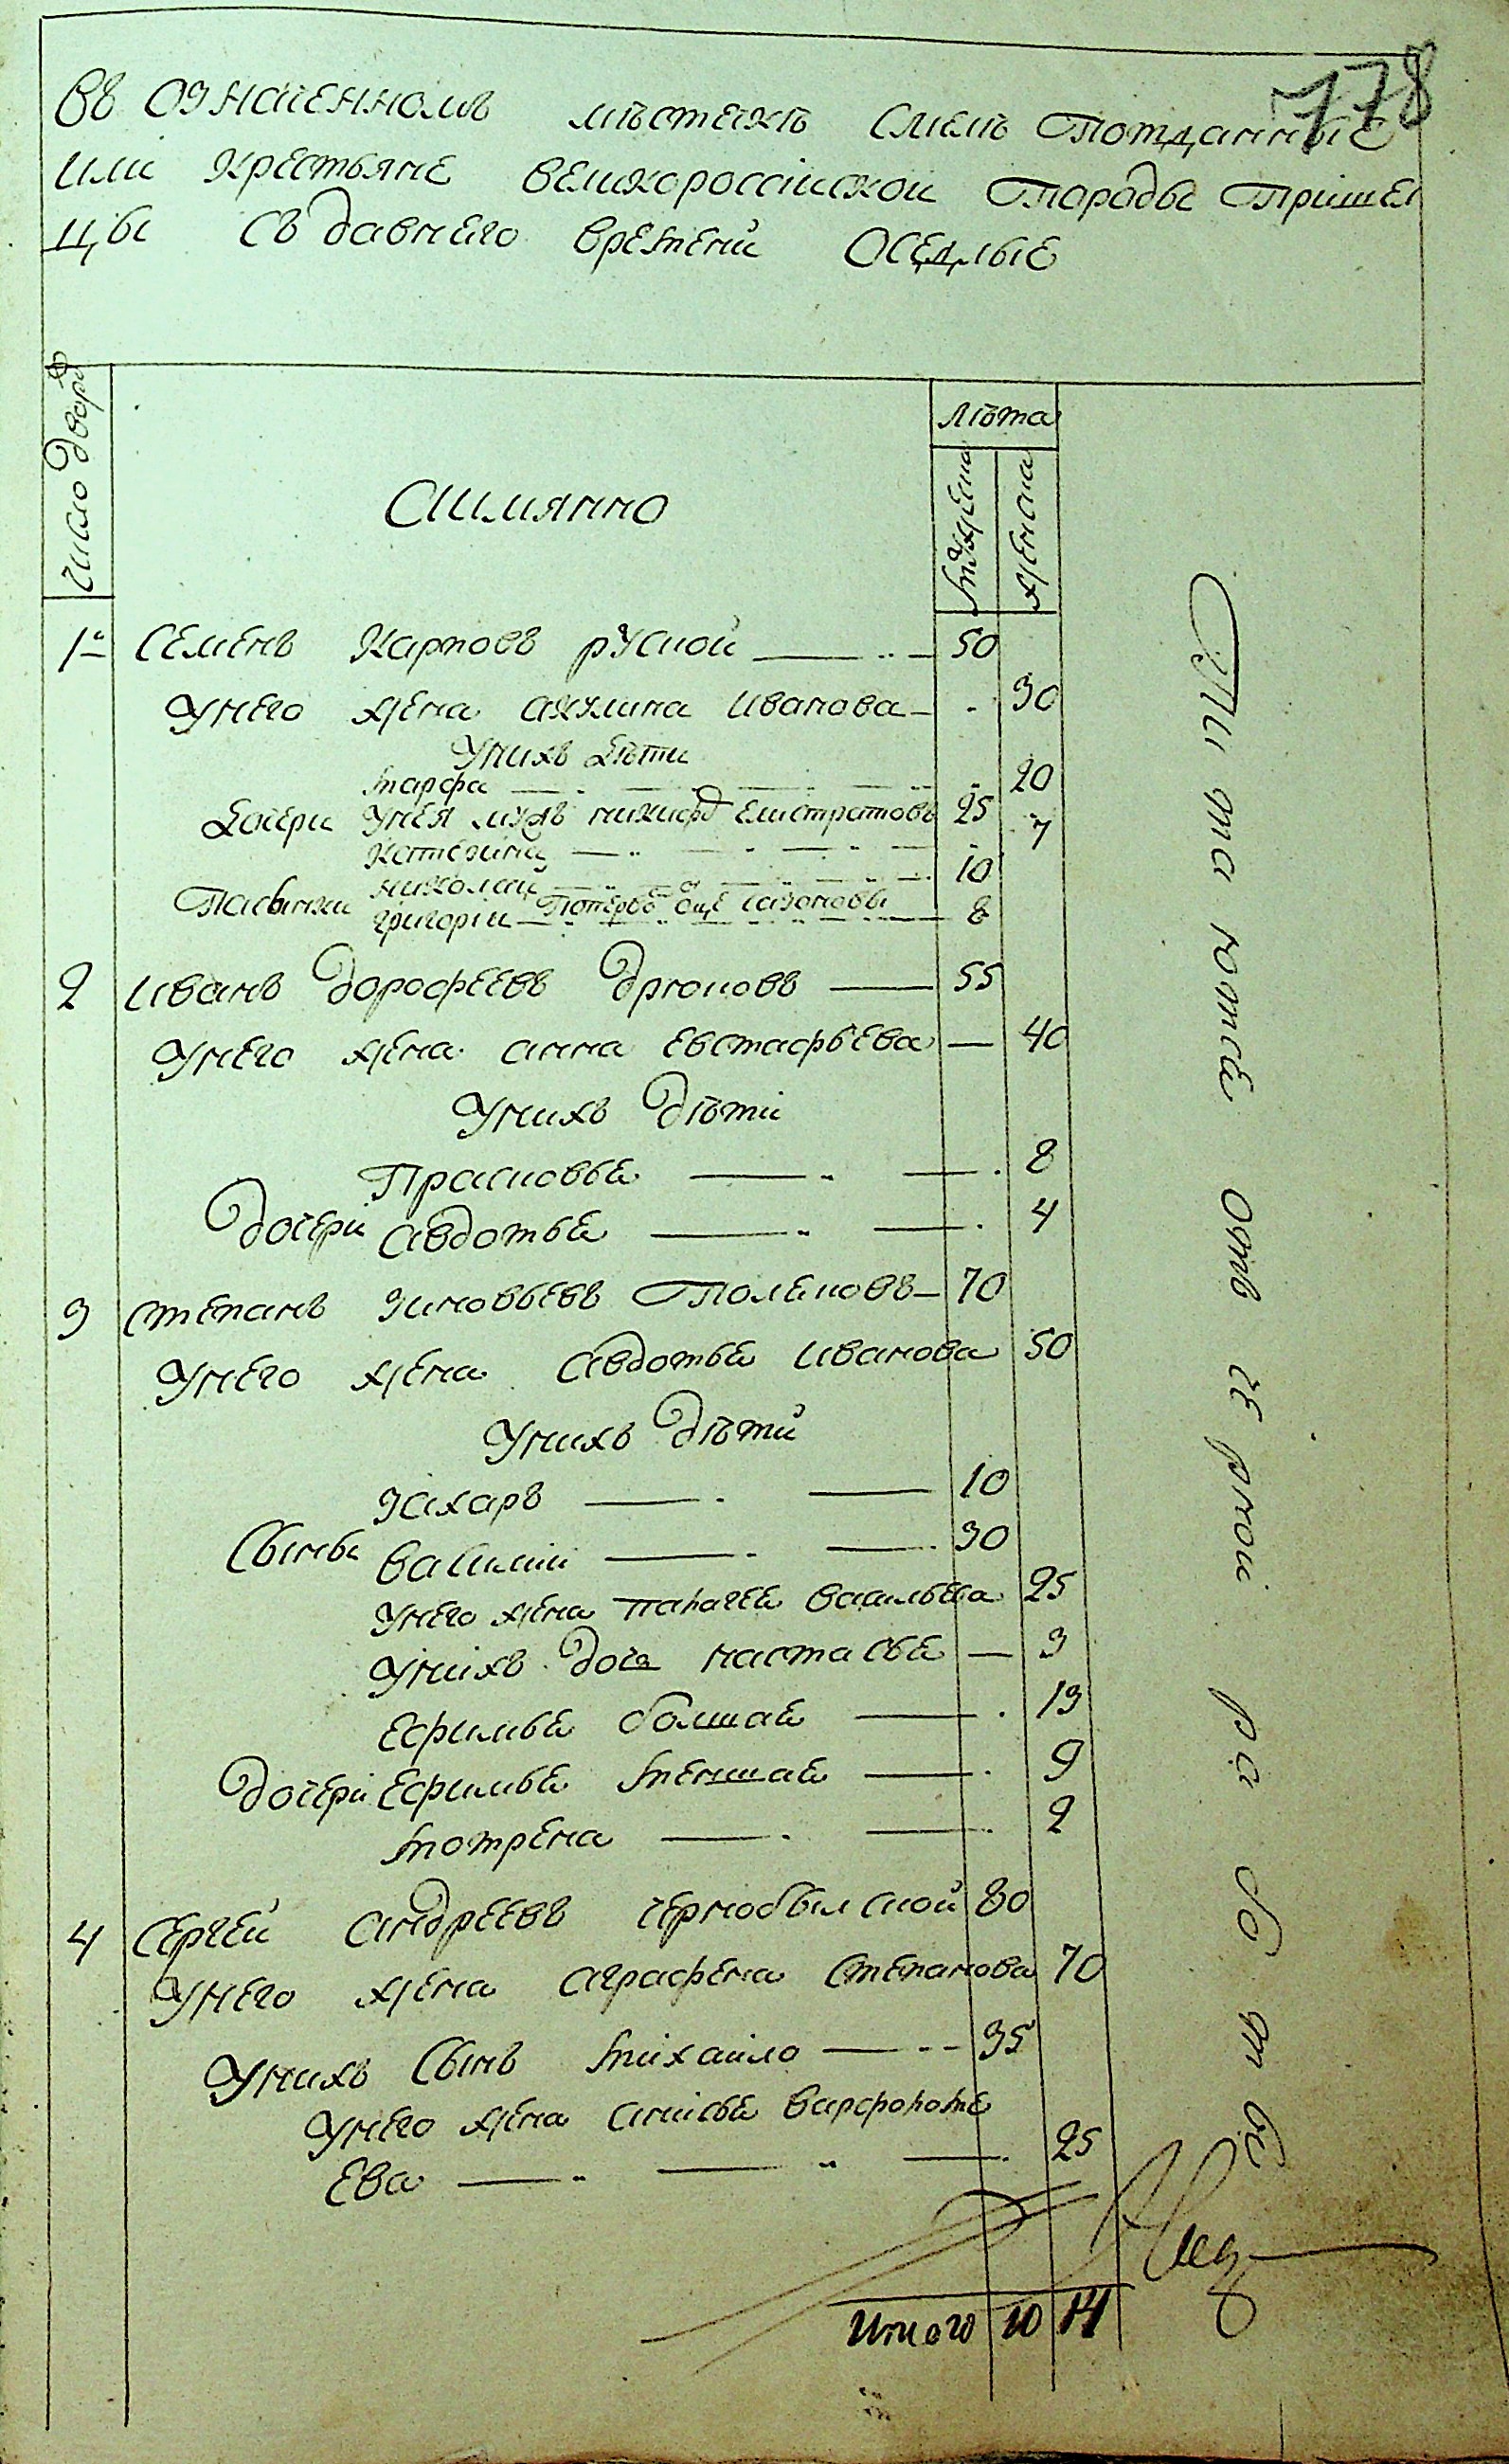 178
Въ означенномъ мѣстечкѣ Смелѣ Потданные
или крестьяне великороссіискои Породы Пришел
цы съ давнего времени Оседлые
Число дворо
Аимянно
Лѣта
Мужеска
Женска
1й Семенъ Карповъ русной 50
Унего жена Акулина Иванова 30
Унихъ Дѣти
Марфа 20
Дочери Унея мужъ никифор Елистратовъ 25
Катерина 7
Николай 10
Пасынки Григоріи Попервъ оце Сазоновы 8
2 Иванъ Дорофеевъ 55
Унего жена Анна Евстафьева 40
Унихъ дѣти
Прасковья 8
Дочери Авдотья 4
3 Степанъ Зиновьевъ Поленовъ 70
Унего жена Авдотья Иванова 50
Унихъ дѣти
Захаръ 10
Сыны Василии 30
Унего жена Пелагея Васильева 25
Унихъ доча настасья 3
Ефимья болшая 13
Дочери Ефимья меншая 9
Мотрена 2
4 Сергеи Андреевъ Чернобылской 80
Унего жена Аграфена Степанова 70
Унихъ Сынъ Михаило 35
Унего жена Анисья Варфоломе
Ева 25
Итого 10 14